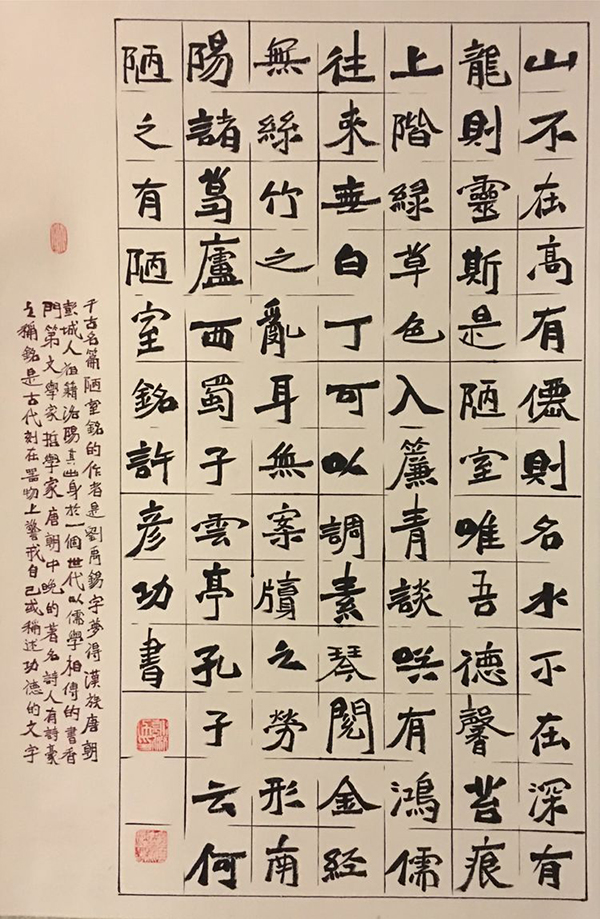 山不在高有僊則名水不在深有
龍則靈斯是陋室唯吾德馨苔痕
上階綠草色入簾青談咲有鴻儒
往來無白丁可以調素琴閱金經
無絲竹之亂耳無案牘之勞形南
陽諸葛廬西蜀子雲亭孔子云何
陋之有陋室銘許彥功書
千古名篇陋室銘的作者是劉禹錫字夢得漢族唐朝
彭城人祖籍洛陽其出身於一個世代以儒學相傳的書香
門第文學家哲學家唐朝中晚的著名詩人有詩豪
之稱銘是古代刻在器物上警戒自己或稱述功德的文字